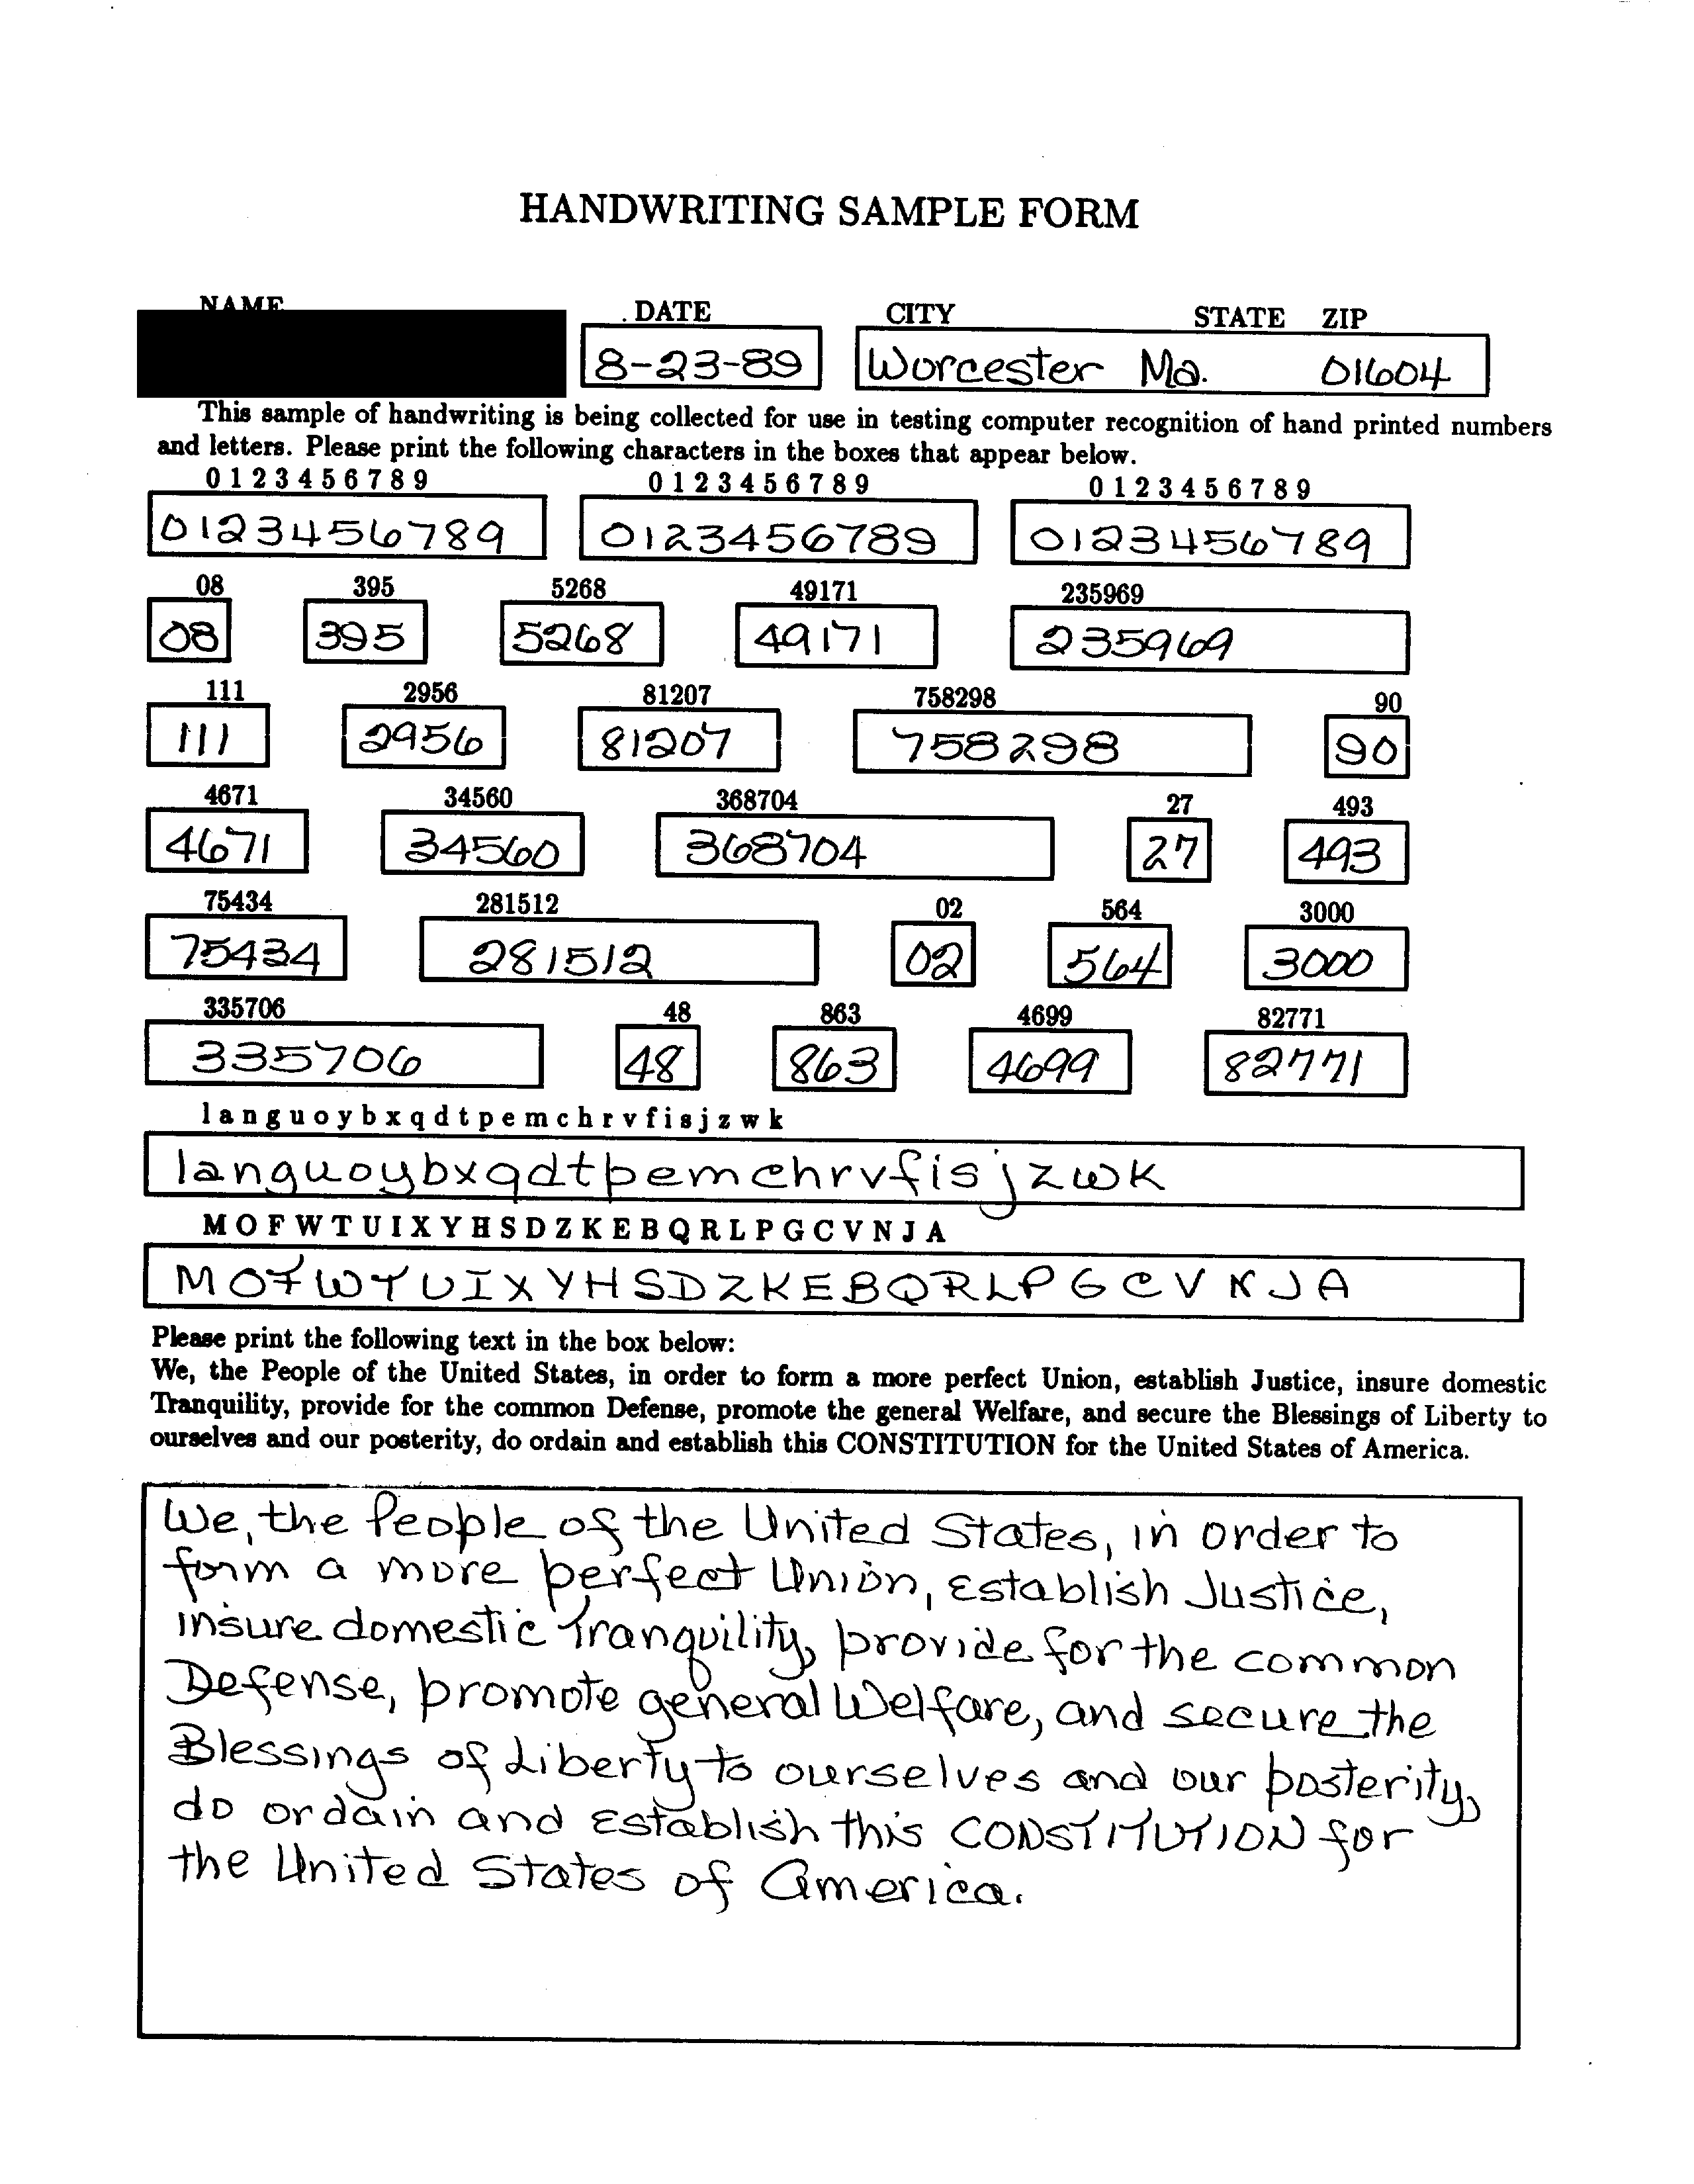 HANDWRITING SAMPLE FORM
NAME DATE CITY STATE ZIP
8-23-89 Worcester Ma. 01604
This sample of handwriting is being collected for use in testing computer recognition of hand printed numbers
and letters. Please print the following characters in the boxes that appear below.
0 1 2 3 4 5 6 7 8 9 0 1 2 3 4 5 6 7 8 9 0 1 2 3 4 5 6 7 8 9
0123456789 0123456789 0123456789
08 395 5268 49171 235969
08 395 5268 49171 235969
111 2956 81207 758298 90
111 2956 81207 758298 90
4671 34560 368704 27 493
4671 34560 368704 27 493
75434 281512 02 564 3000
75434 281512 02 564 3000
335706 48 863 4699 82771
335706 48 863 4699 82771
l a n g u o y b x q d t p e m c h r v f i s j z w k
languoybxqdtpemchrvfisjzwk
M O F W T U I X Y H S D Z K E B Q R L P G C V N J A
MOFWTUIXYHSDZKEBQRLPGCVNJA
Please print the following text in the box below:
We, the People of the United States, in order to form a more perfect Union, establish Justice, insure domestic
Tranquility, provide for the common Defense, promote the general Welfare, and secure the Blessings of Liberty to
ourselves and our posterity, do ordain and establish this CONSTITUTION for the United States of America.
We, the People of the United States, in order to
form a more perfect Union, establish Justice,
insure domestic Tranquility, provide for the common
Defense, promote general Welfare, and secure the
Blessings of Liberty to ourselves and our posterity,
do ordain and establish this CONSTITUTION for
the United States of America.